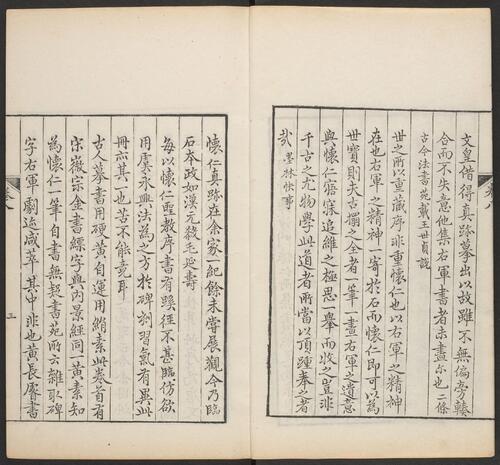 文皇借得真跡摹出以故雖不無偏旁轉
合而不失意他集右軍書者未盡尔也二條
古今法書苑載王世貞說
世之所以重藏序非重懷仁也以右軍之精神
在也右軍之精神一寄於石而懷仁即可以為
世寶則夫古搨之合者一筆一畫右軍之遺意
與懷仁寤寐追維之極思一舉而收之豈非
千古之尤物學此道者所當以頂踵奉之者
哉 墨林快事
懷仁真跡在余家一紀餘未嘗展觀今乃臨
石本政如漢元殺毛延壽
每以懷仁聖教序書有蹊徑不甚臨仿欲
用虞永興法為之方於碑刻習氣有異此
冊亦其一也苦不能竟耳
古人摹書用硬黃自運用絹素此卷首有
宋徽宗金書縹字與內景經同一黃素知
為懷仁一筆自書無契書苑所云雜取碑
字右軍劇迹咸萃其中非也黃長睿書
卷八
三